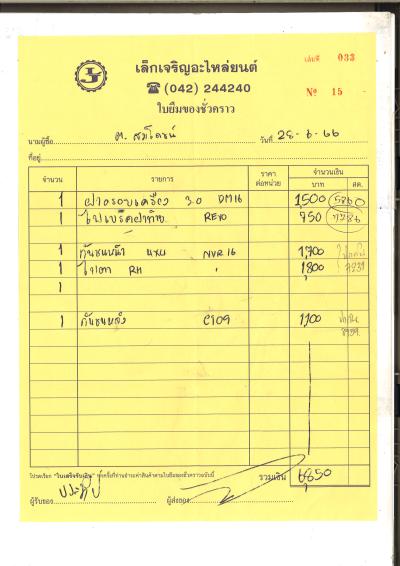 เล็กเจริญอะไหล่ยนต์
เล่มที่ 033
☎ (042) 244240
ใบยืมของชั่วคราว
№ 15
นามผู้ซื้อ วันที่ 28-6-66
ที่อยู่
จำนวน รายการ ราคาต่อหน่วย จำนวนเงิน
บาท สต.
1 ฝาครอบเครื่อง 3.0 DM16 1,500
1 REVO 750
1
1 กันชนหน้า NVR16 1,700
1 ไฟตา RH " 1,800
1
1 กันชนหลัง C109 1,100
โปรดเรียก "ใบเสร็จรับเงิน" ทุกครั้งที่ท่านชำระค่าสินค้าตามใบยืมของชั่วคราวฉบับนี้
รวมเงิน 6,850
ผู้รับของ ผู้ส่งของ